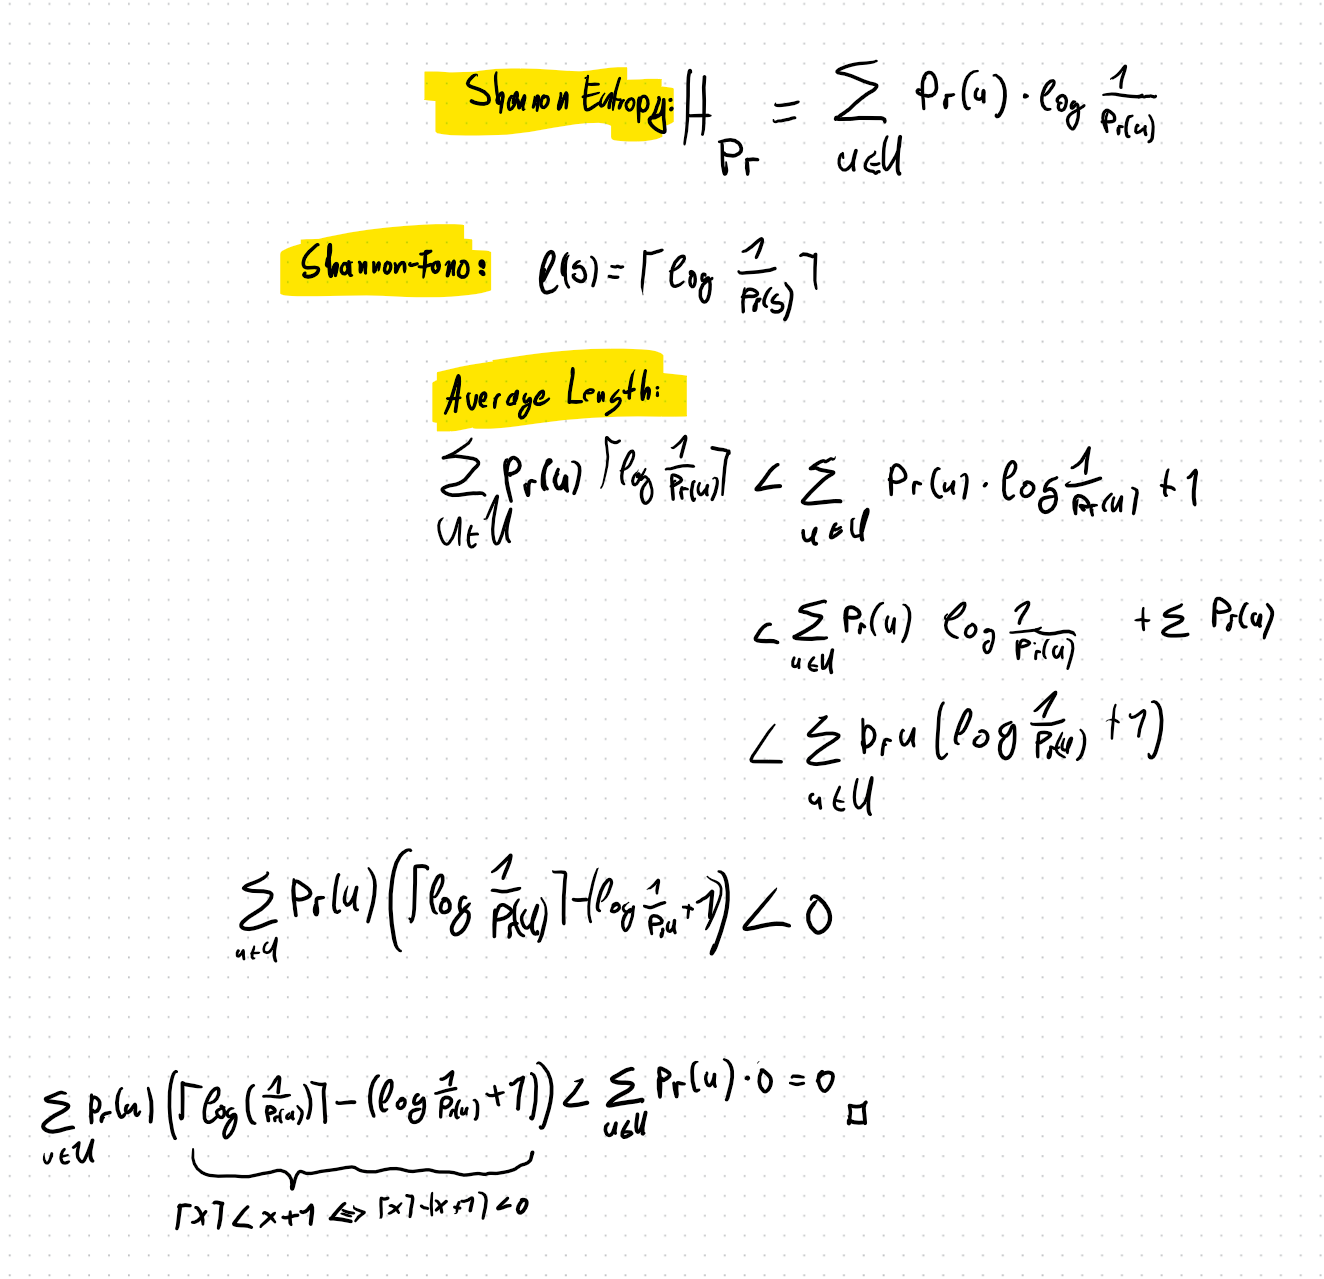 Shannon Entropy: H_Pr = ∑_{u∈U} Pr(u) · log 1/Pr(u)
Shannon-Fano: l(s) = ⌈log 1/Pr(s)⌉
Average Length:
∑_{u∈U} Pr(u) ⌈log 1/Pr(u)⌉ < ∑_{u∈U} Pr(u) · log 1/Pr(u) + 1
< ∑_{u∈U} Pr(u) log 1/Pr(u) + ∑ Pr(u)
< ∑_{u∈U} Pr u (log 1/Pr(u) + 1)
∑_{u∈U} Pr(u) (⌈log 1/Pr(u)⌉ - (log 1/Pr u + 1)) < 0
∑_{u∈U} Pr(u) (⌈log(1/Pr(u))⌉ - (log 1/Pr(u) + 1)) < ∑_{u∈U} Pr(u) · 0 = 0 □
⌈x⌉ < x+1 ⇔ ⌈x⌉-(x+1) < 0